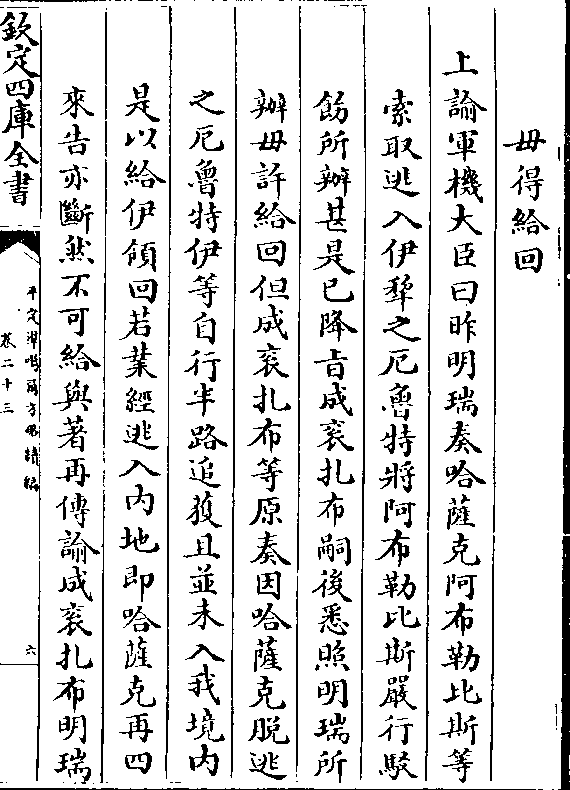 毋得給回
上諭軍機大臣曰昨明瑞奏哈薩克阿布勒比斯等
索取逃入伊犂之厄魯特將阿布勒比斯嚴行駁
飭所辦甚是已降㫖成衮扎布嗣後悉照明瑞所
辦毋許給回但成衮扎布等原奏因哈薩克脱逃
之厄魯特伊等自行半路追獲且並未入我境内
是以給伊領回若業經逃入内地即哈薩克再四
來告亦斷然不可給與著再傳諭成衮扎布明瑞
欽定四庫全書
平定凖噶爾方畧續編
卷二十三
六